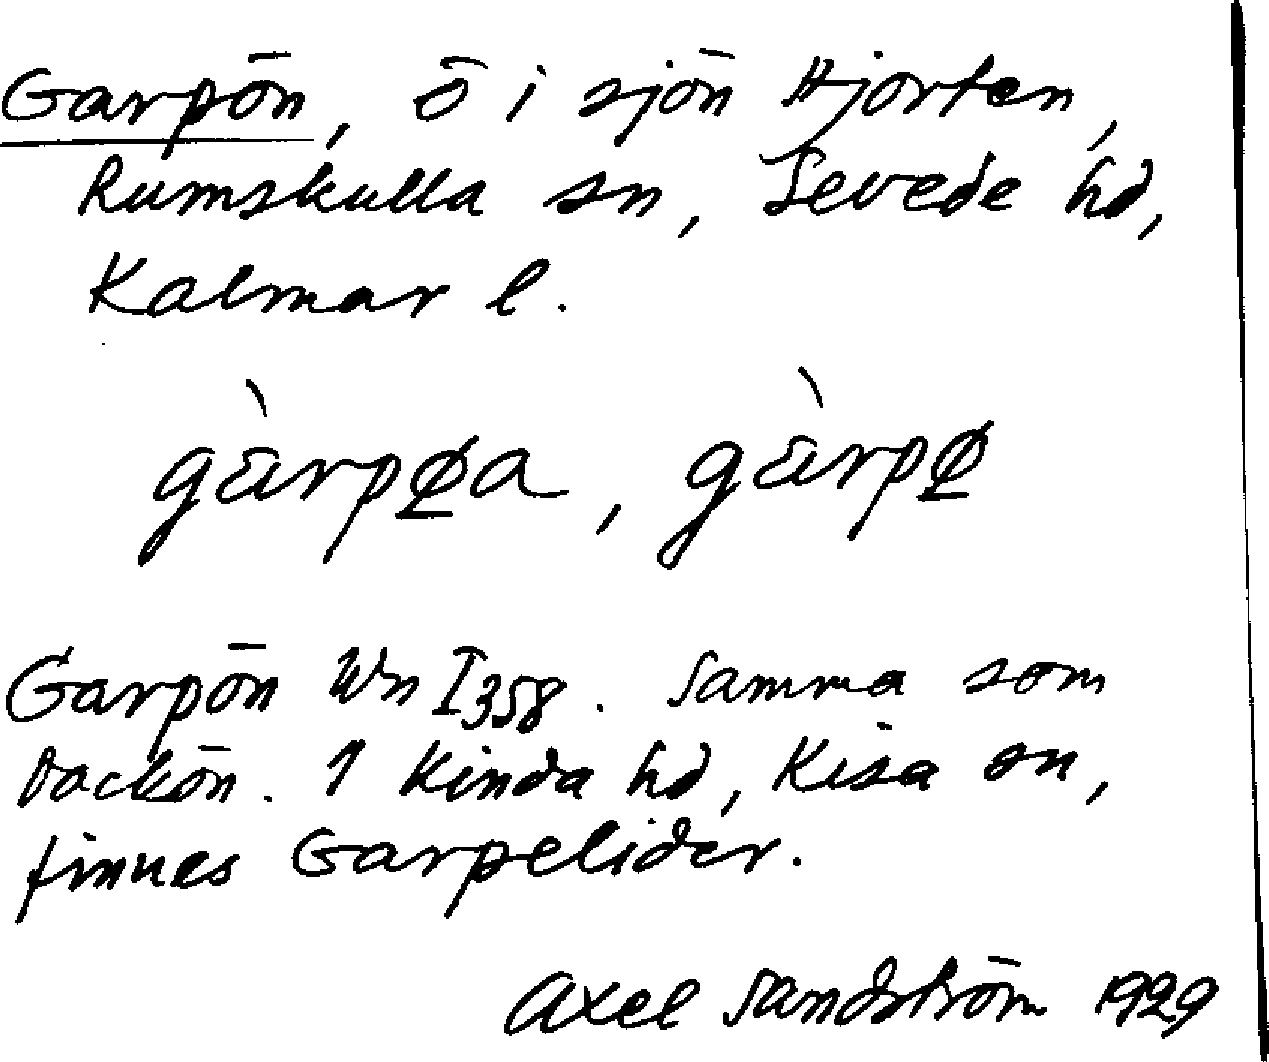 Garpön, ö i sjön Hjorten,
Rumskulla sn, Sevede hd,
Kalmar l.
gàrpø̱a, gàrpø̱
Garpön Wn I 358. Samma som
Dackön. I Kinda hd, Kisa sn,
finnes Garpelider.
Axel Sandström 1929